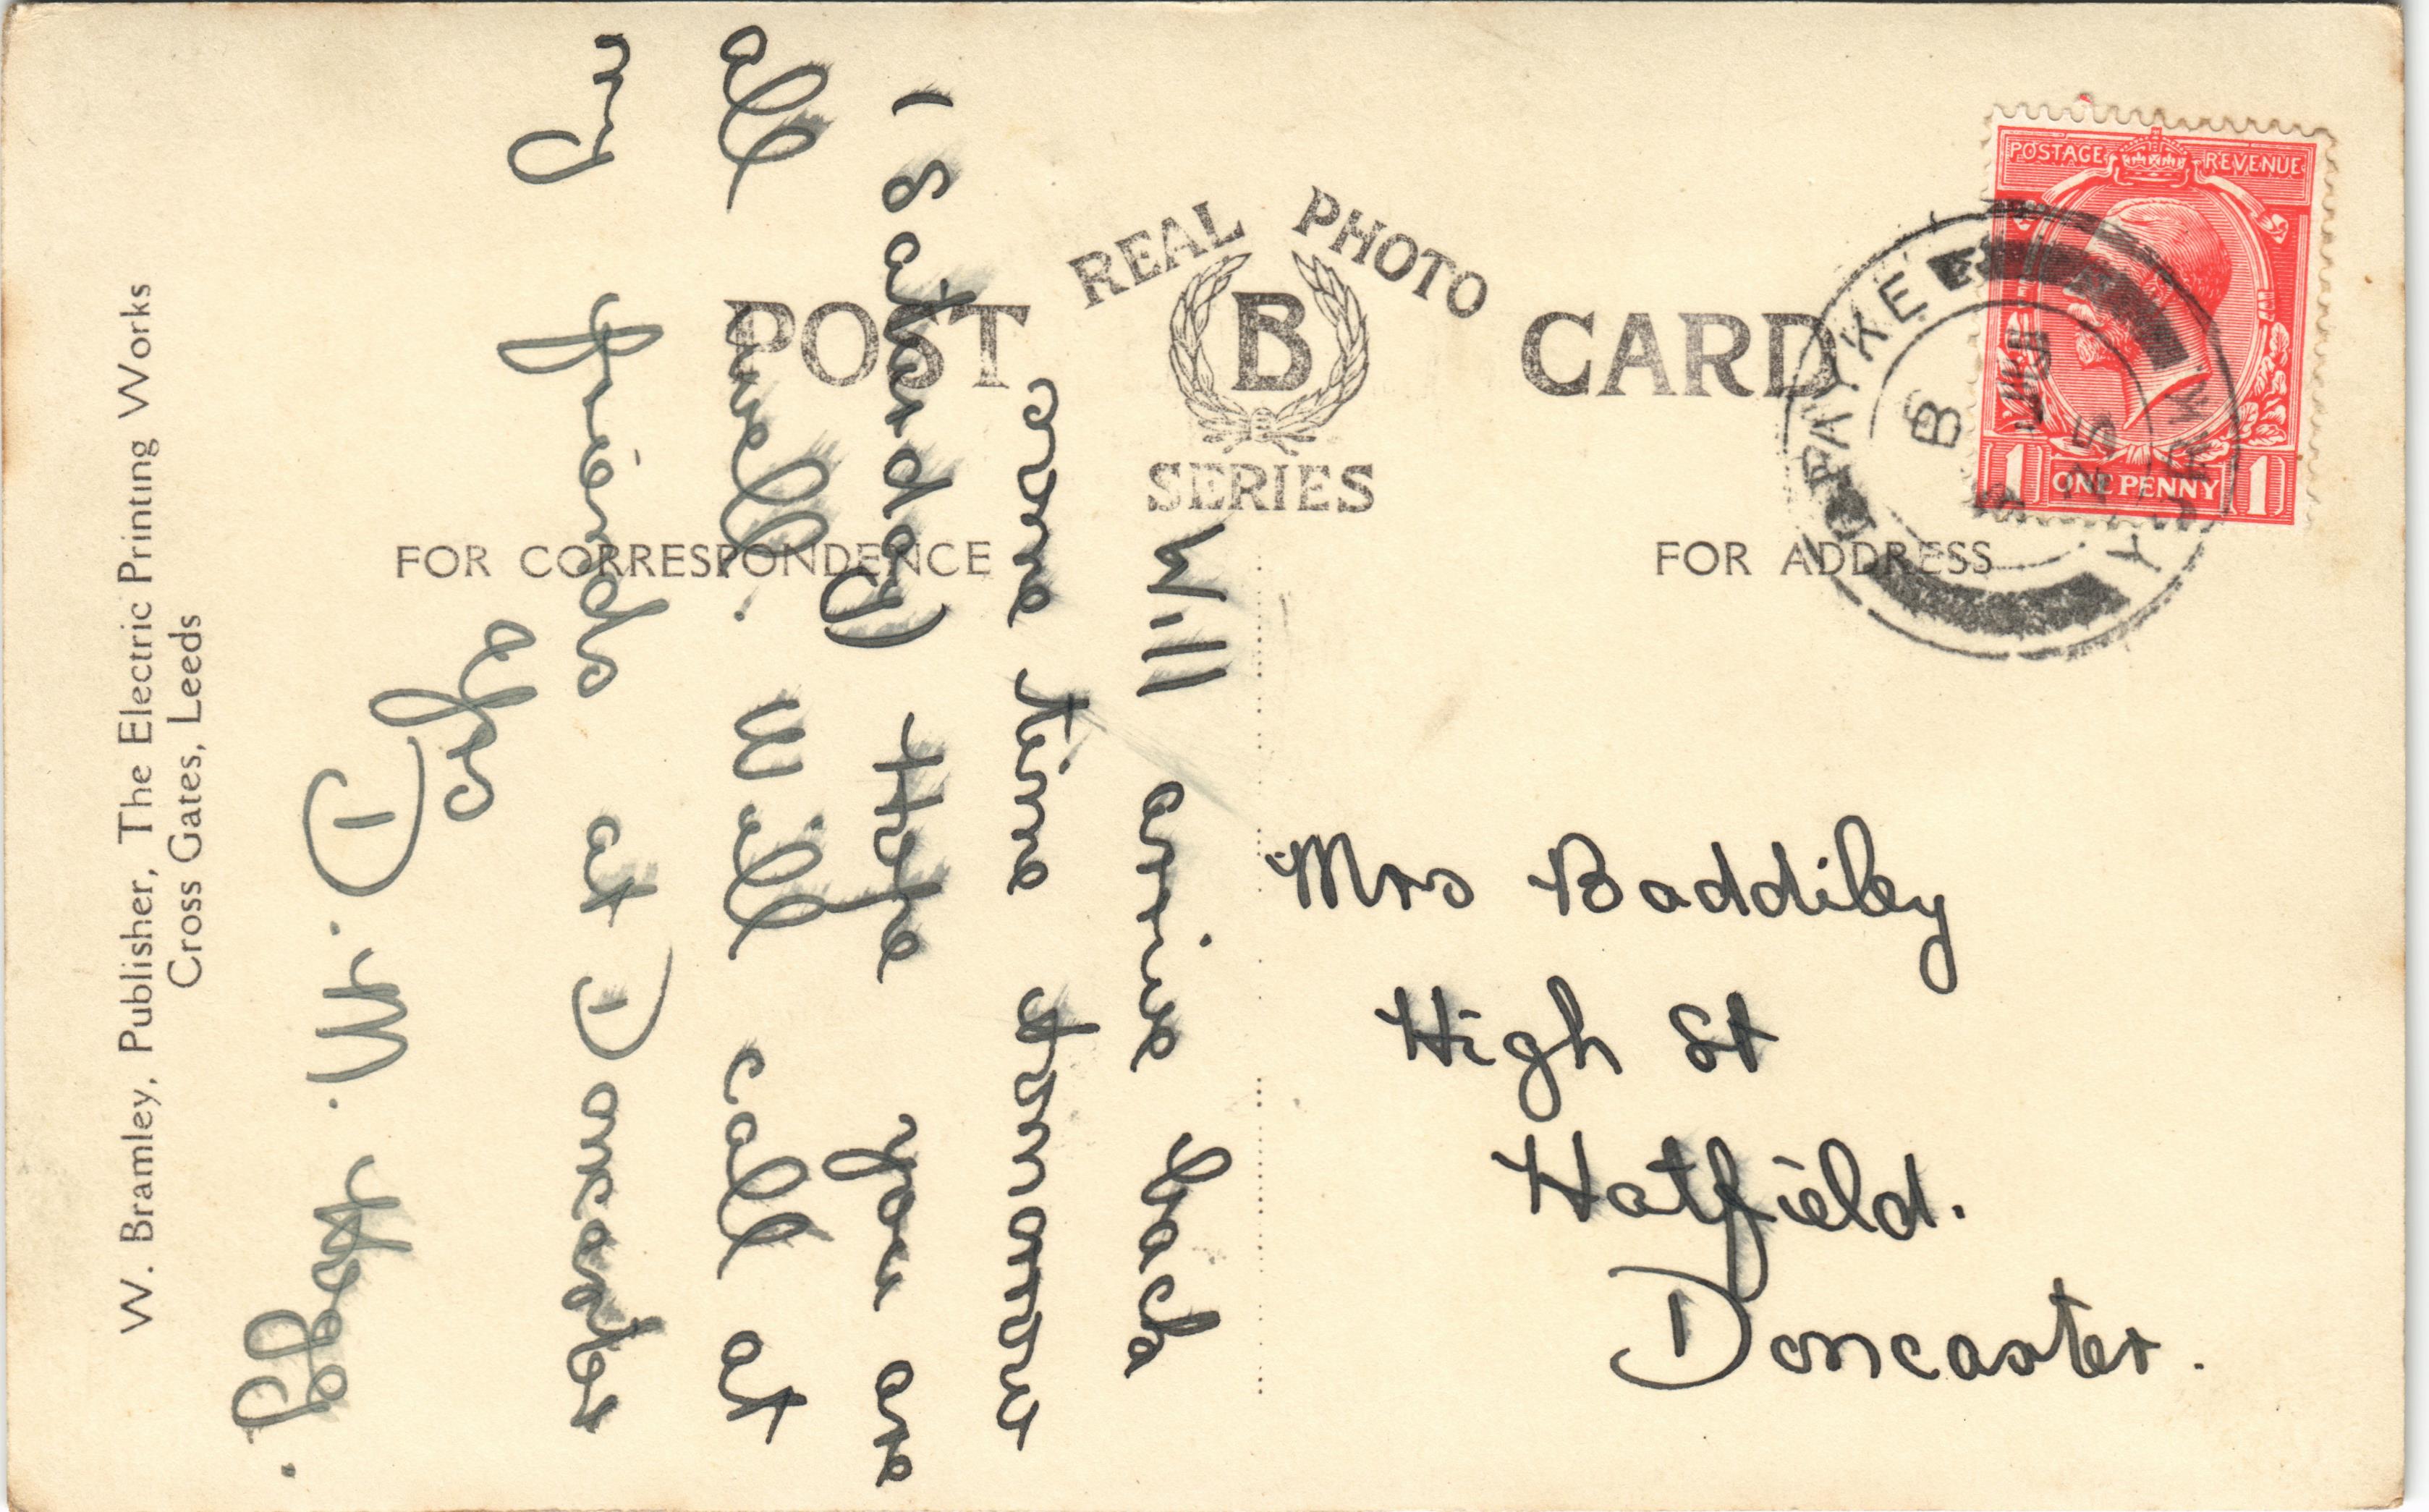 POST CARD
REAL PHOTO
B
SERIES
FOR CORRESPONDENCE
FOR ADDRESS
POSTAGE REVENUE
1 ONE PENNY 1
B
5 JU
25
W. Bramley, Publisher, The Electric Printing Works
Cross Gates, Leeds
Will arrive back
some time tomorrow
(Saturday) Hope you are
all well. Will call at
my friends at Doncaster
D. M. Hogg.
Mrs Baddiley
High St
Hatfield.
Doncaster.